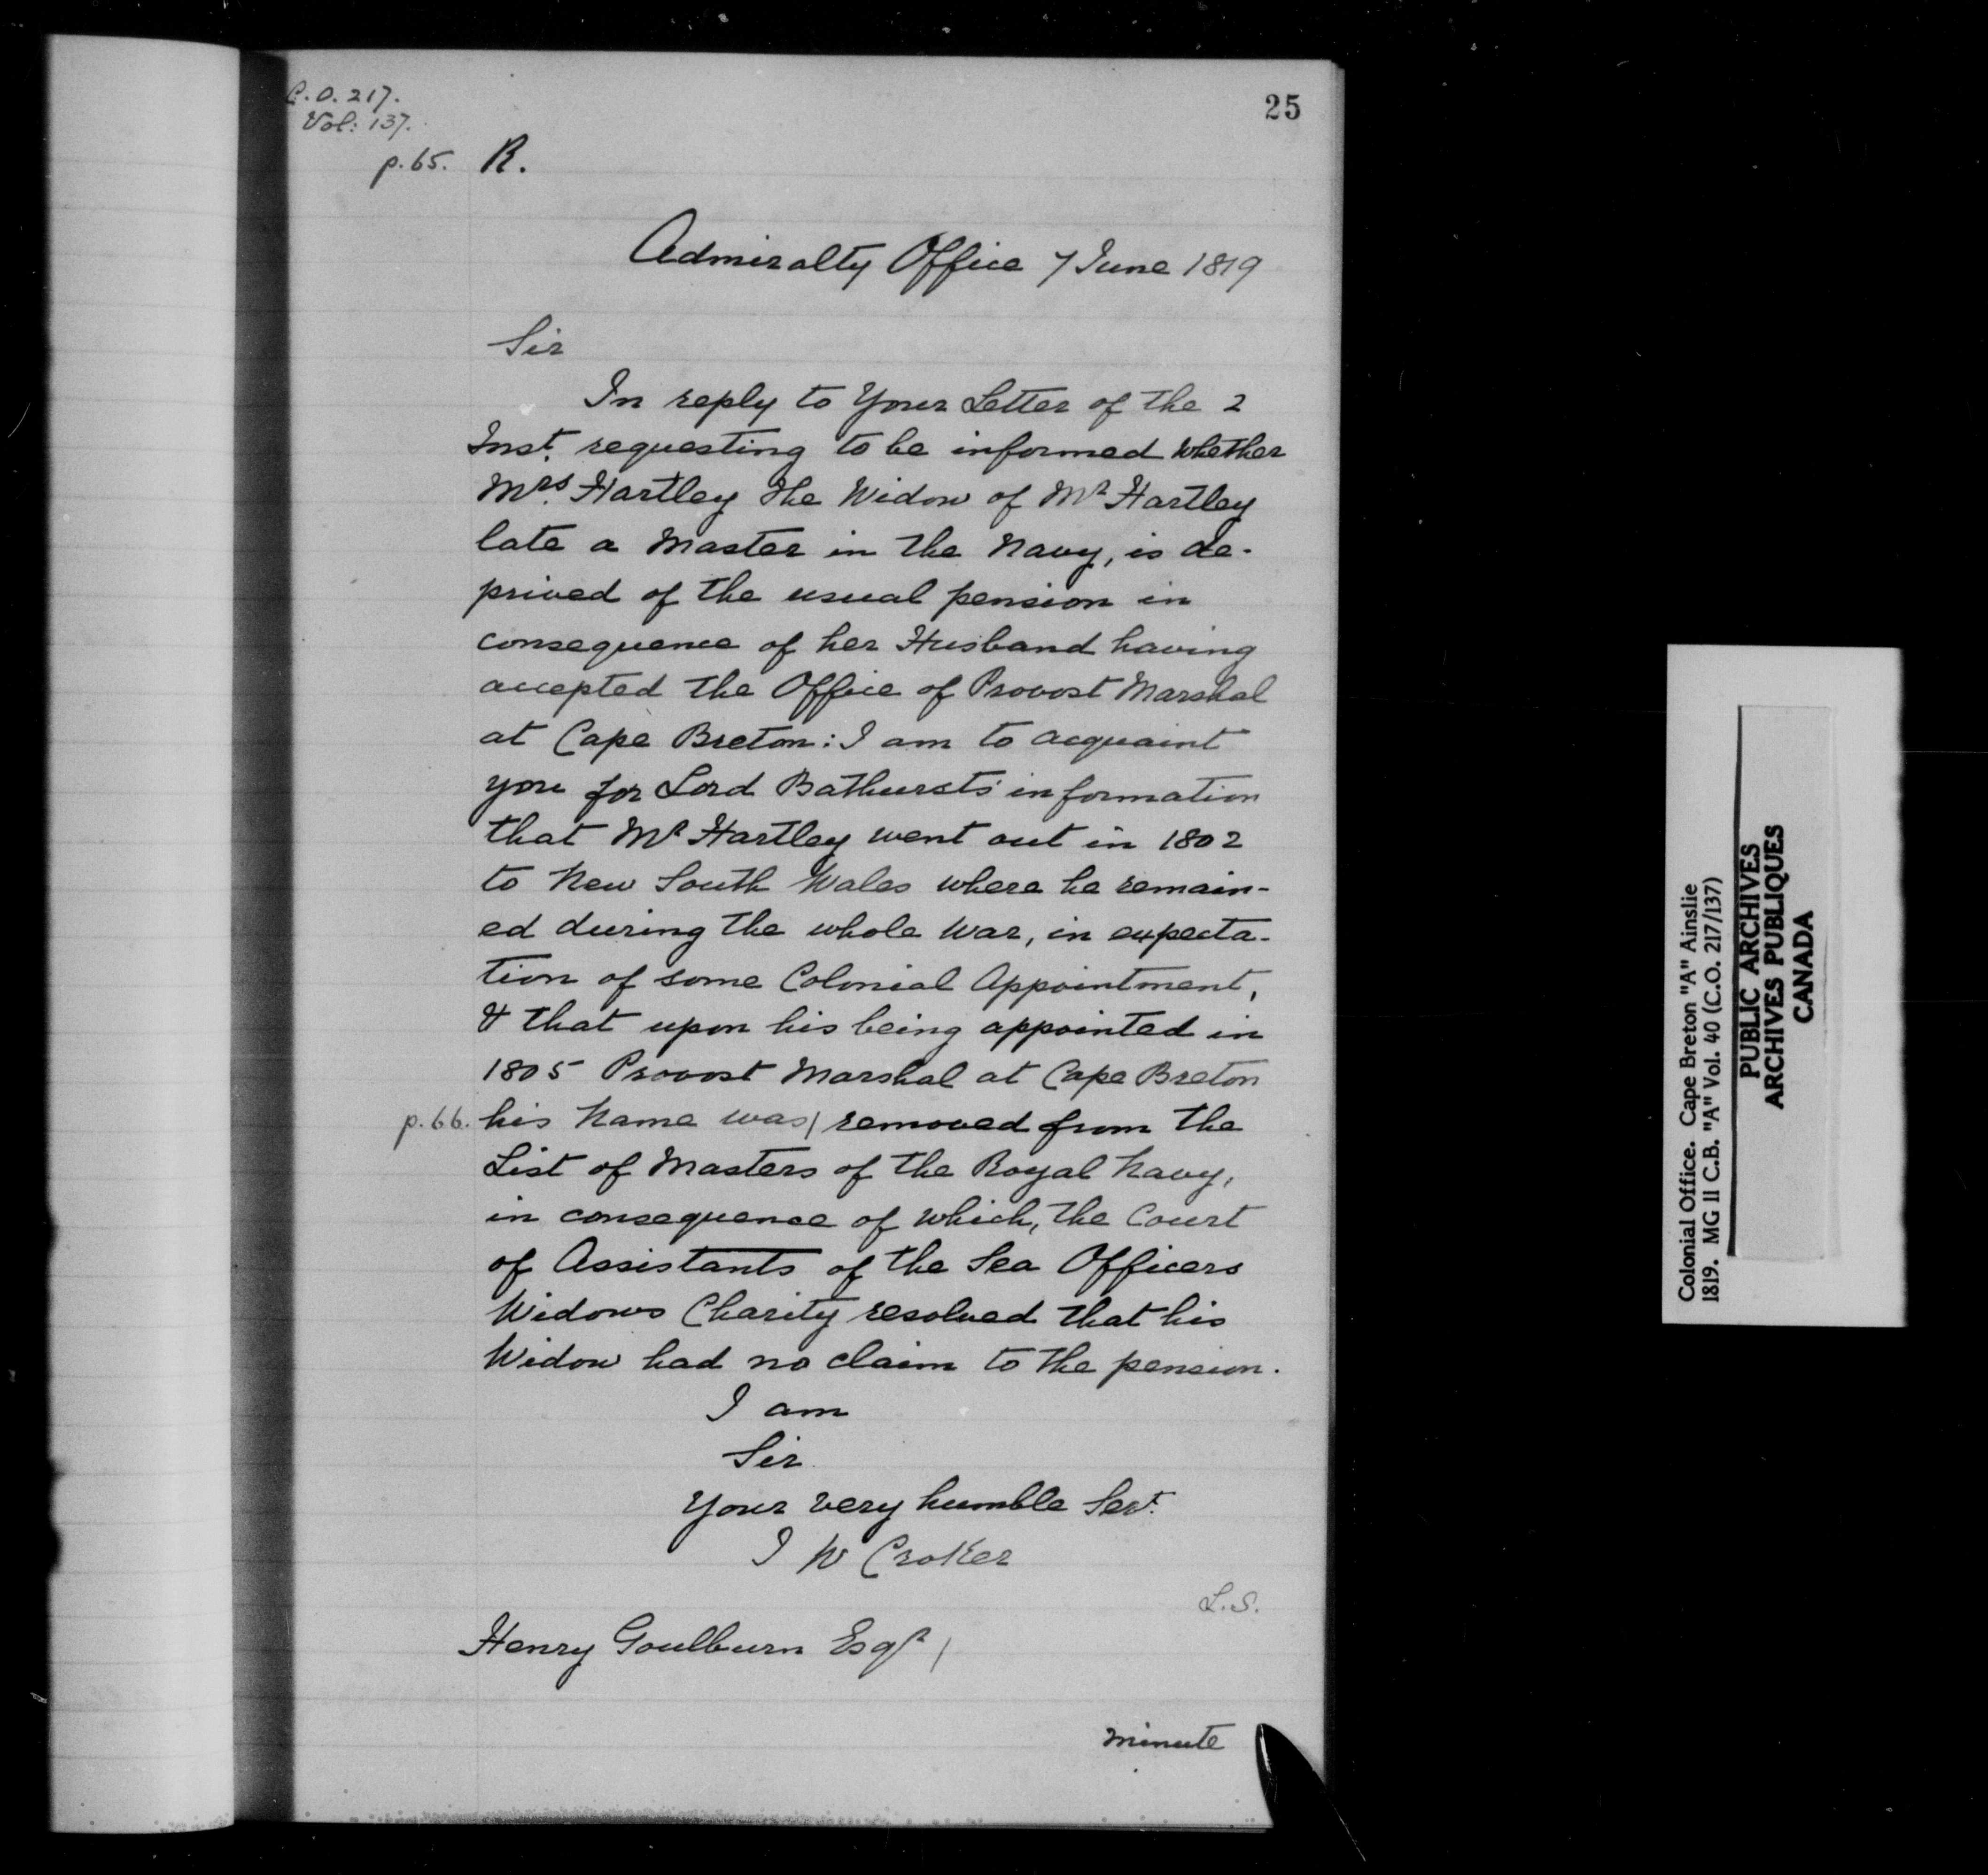 C.O. 217.
Vol: 137.
25
p. 65. R.
Admiralty Office 7 June 1819
Sir
In reply to Your Letter of the 2
Inst. requesting to be informed whether
Mrs. Hartley the Widow of Mr Hartley
late a Master in the Navy, is de-
prived of the usual pension in
consequence of her Husband having
accepted the Office of Provost Marshal
at Cape Breton: I am to acquaint
you for Lord Bathursts' information
that Mr Hartley went out in 1802
to New South Wales where he remain-
ed during the whole War, in expecta-
tion of some Colonial Appointment,
& that upon his being appointed in
1805 Provost Marshal at Cape Breton
p. 66. his Name was/ removed from the
List of Masters of the Royal Navy,
in consequence of which, the Court
of Assistants of the Sea Officers
Widows Charity resolved that his
Widow had no claim to the pension.
I am
Sir
Your very humble Servt.
J W Croker
L.S.
Henry Goulburn Esqr /
minute
Colonial Office. Cape Breton "A" Ainslie
1819. MG 11 C.B. "A" Vol. 40 (C.O. 217/137)
PUBLIC ARCHIVES
ARCHIVES PUBLIQUES
CANADA